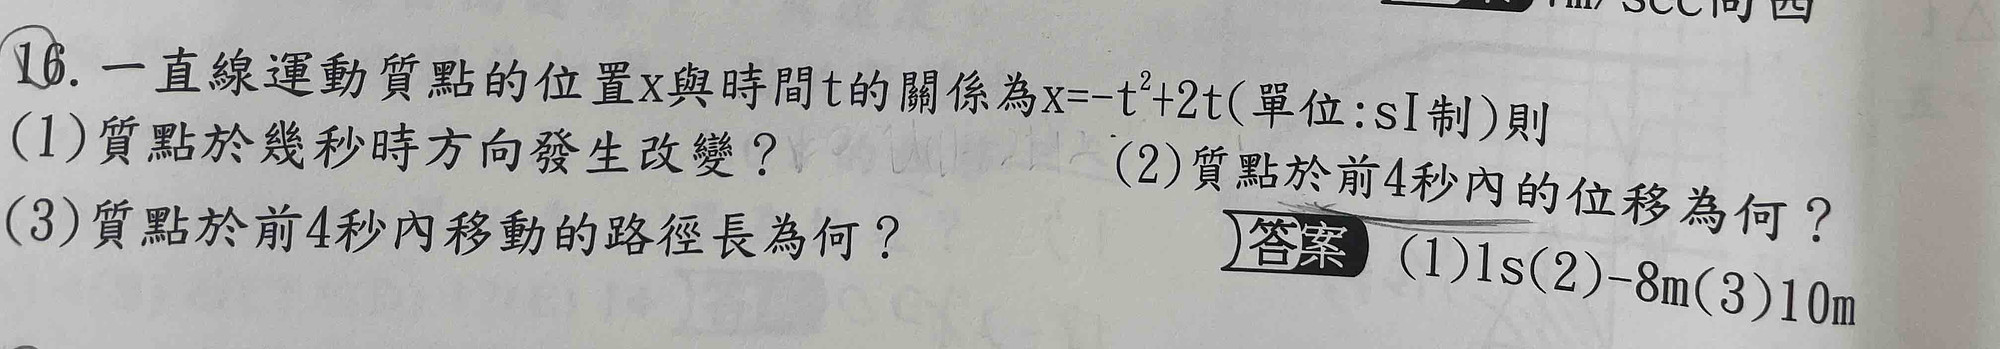 m/sec向西
16.一直線運動質點的位置x與時間t的關係為x=-t²+2t(單位:sI制)則
(1)質點於幾秒時方向發生改變？ (2)質點於前4秒內的位移為何？
(3)質點於前4秒內移動的路徑長為何？ 答案 (1)1s(2)-8m(3)10m